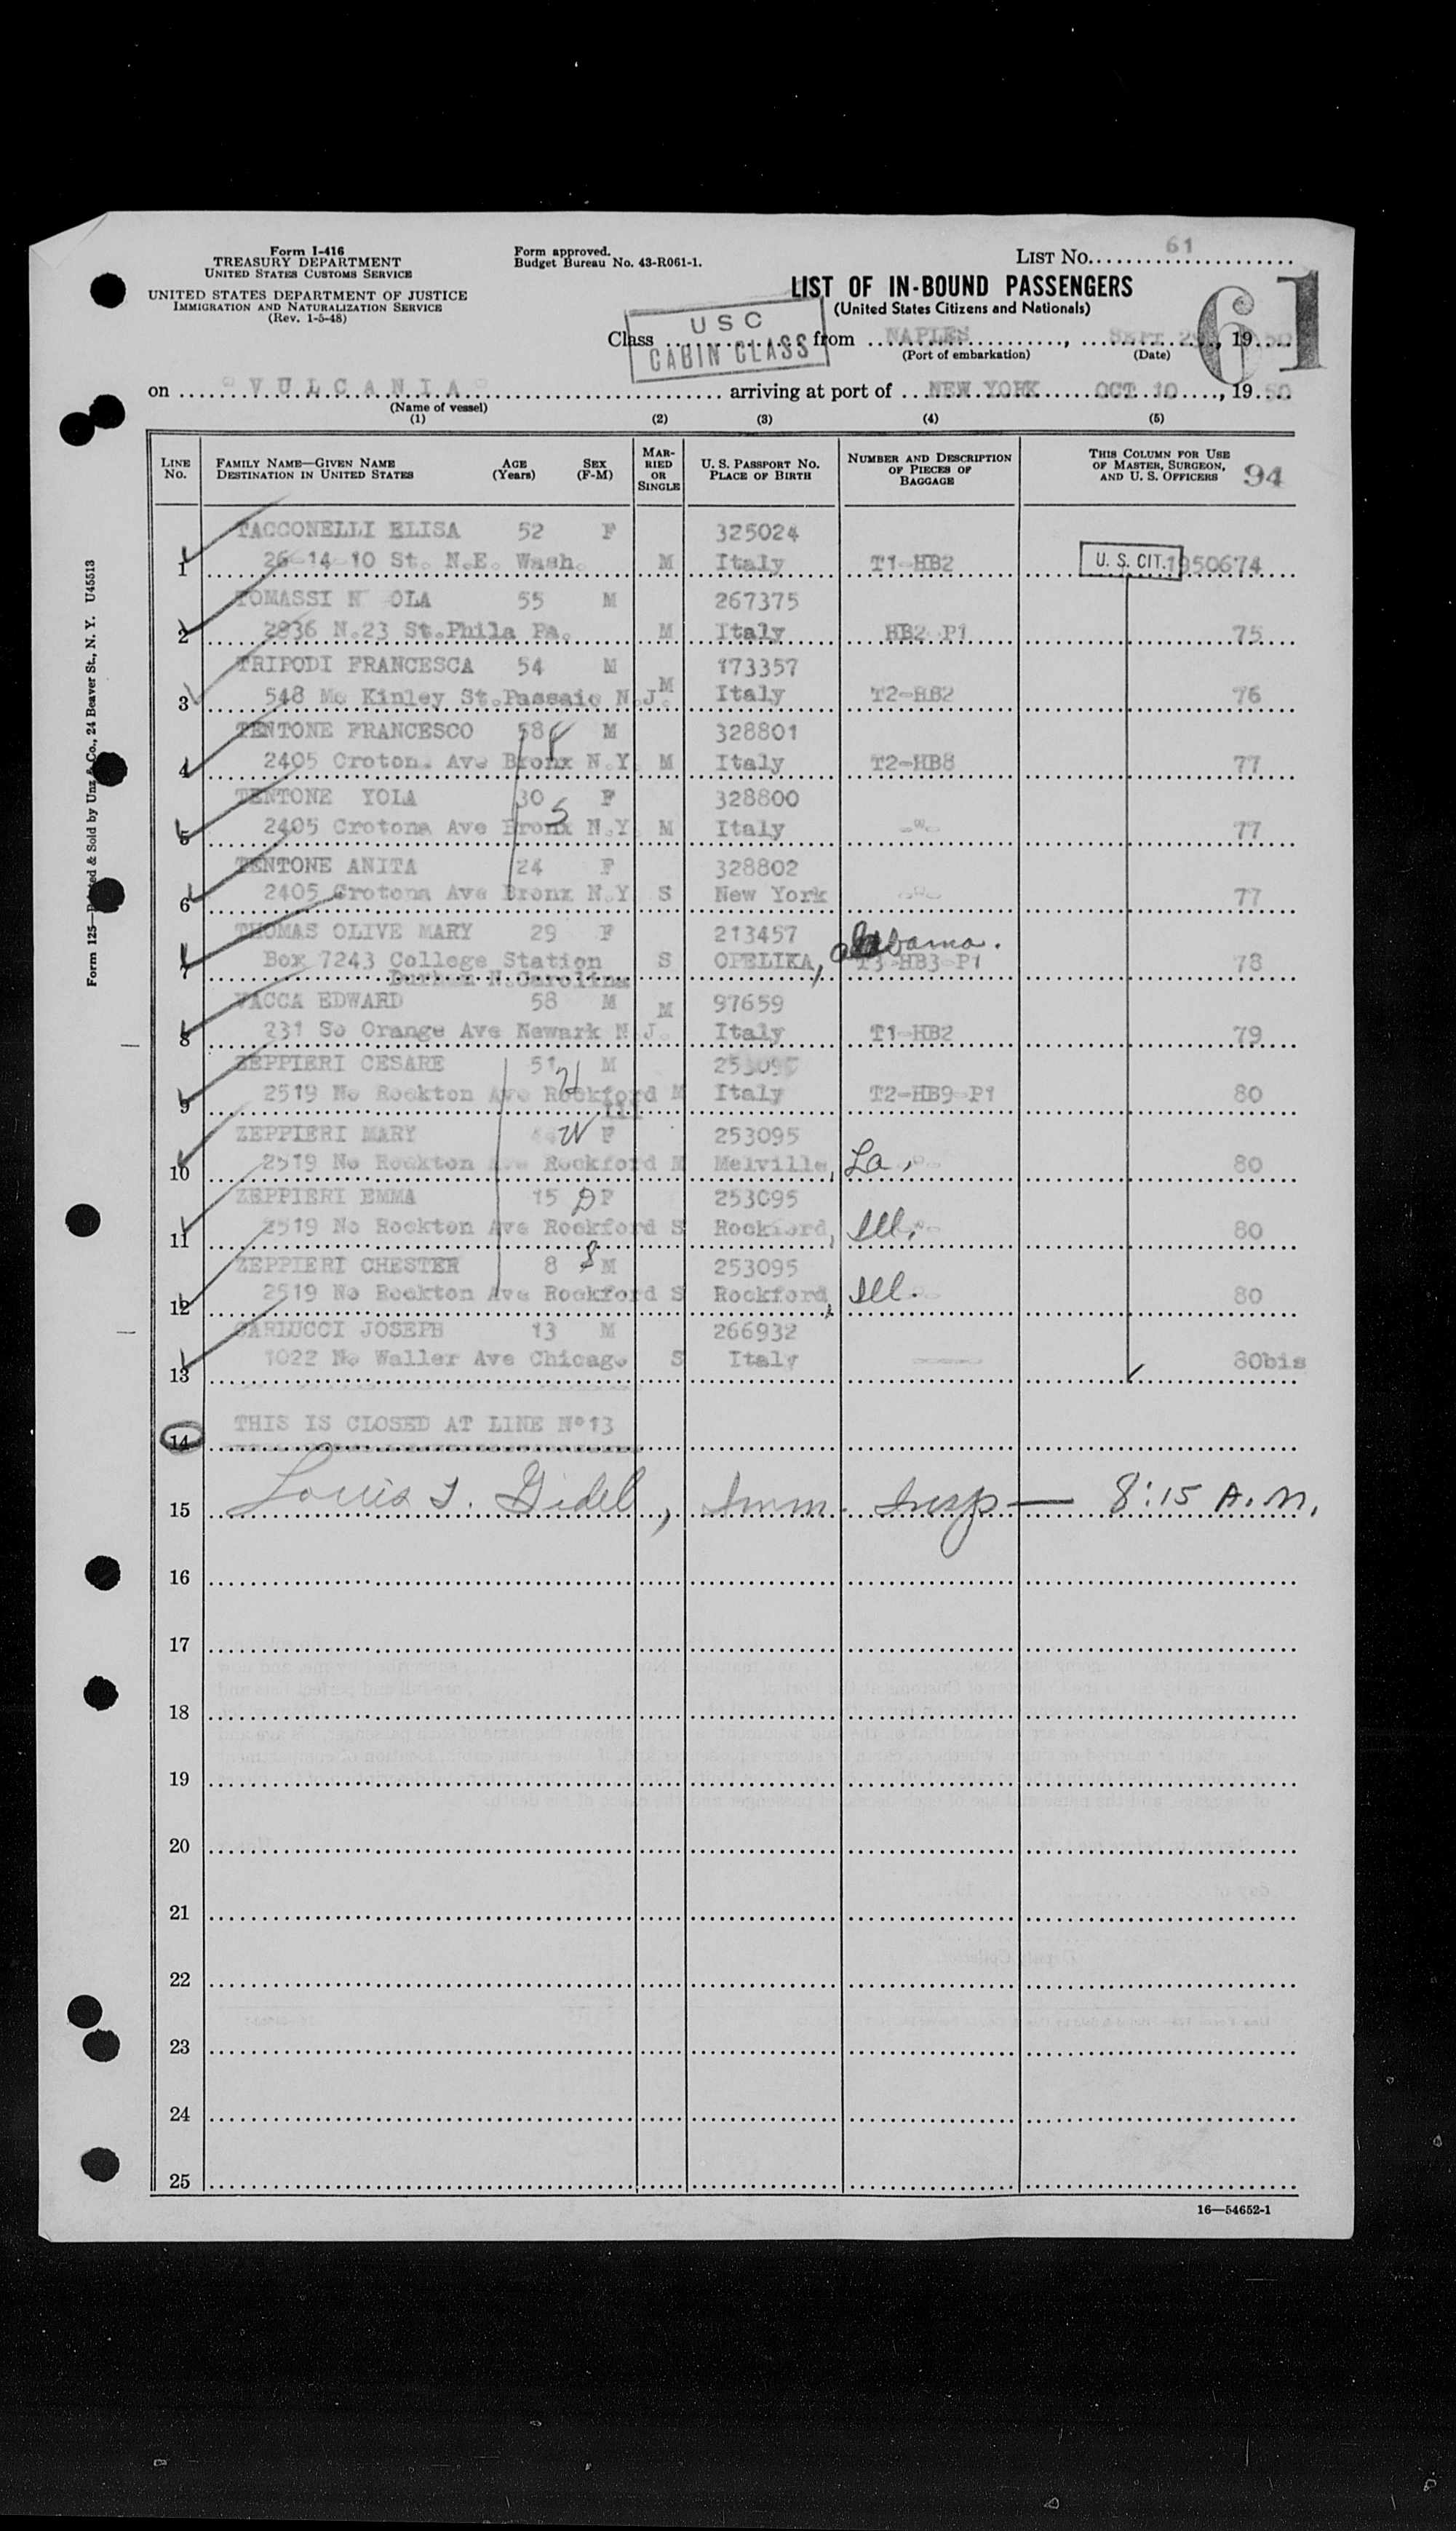 Form I-416
TREASURY DEPARTMENT
UNITED STATES CUSTOMS SERVICE
UNITED STATES DEPARTMENT OF JUSTICE
IMMIGRATION AND NATURALIZATION SERVICE
(Rev. 1-5-48)
Form approved.
Budget Bureau No. 43-R061-1.
LIST NO. 61
61
LIST OF IN-BOUND PASSENGERS
(United States Citizens and Nationals)
USC
CABIN CLASS
Class from NAPLES, SEPT, 1950
(Port of embarkation) (Date)
on "VULCANIA" arriving at port of NEW YORK OCT 10, 1950
(Name of vessel)
(1) (2) (3) (4) (5)
LINE NO. FAMILY NAME—GIVEN NAME DESTINATION IN UNITED STATES AGE (Years) SEX (F-M) MARRIED OR SINGLE U. S. PASSPORT NO. PLACE OF BIRTH NUMBER AND DESCRIPTION OF PIECES OF BAGGAGE THIS COLUMN FOR USE OF MASTER, SURGEON, AND U. S. OFFICERS 94
TACCONELLI ELISA 52 F 325024
1 26-14-10 St. N.E. Wash. M Italy T1-HB2 U. S. CIT. 1950674
TOMASSI N OLA 55 M 267375
2 2936 N.23 St.Phila Pa. M Italy HB2-P1 75
TRIPODI FRANCESCA 54 M 173357
3 548 Mc Kinley St.Passaic N.J. M Italy T2-HB2 76
TENTONE FRANCESCO 58 M 328801
4 2405 Croton. Ave Bronx N.Y. M Italy T2-HB8 77
TENTONE YOLA 30 S F 328800
5 2405 Crotona Ave Bronx N.Y. M Italy -"- 77
TENTONE ANITA 24 F 328802
6 2405 Crotona Ave Bronx N.Y S New York -"- 77
THOMAS OLIVE MARY 29 F 213457
7 Box 7243 College Station S OPELIKA, Alabama. T3-HB3-P1 78
Durham N.Carolina
VACCA EDWARD 58 M 97659
8 231 So Orange Ave Newark N.J. M Italy T1-HB2 79
ZEPPIERI CESARE 51 H M 253095
9 2519 No Rockton Ave Rockford M Italy T2-HB9-P1 80
Ill
ZEPPIERI MARY W F 253095
10 2519 No Rockton Ave Rockford M Melville, La. -"- 80
ZEPPIERI EMMA 15 D F 253095
11 2519 No Rockton Ave Rockford S Rockford, Ill. -"- 80
ZEPPIERI CHESTER 8 S M 253095
12 2519 No Rockton Ave Rockford S Rockford, Ill. -"- 80
CARLUCCI JOSEPH 13 M 266932
13 1022 No Waller Ave Chicago S Italy 80bis
14 THIS IS CLOSED AT LINE N°13
15 Louis J. Gidel, Imm. Insp — 8:15 A.M.
16
17
18
19
20
21
22
23
24
25
16—54652-1
Form 125—Printed & Sold by Unz & Co., 24 Beaver St., N. Y. U45513